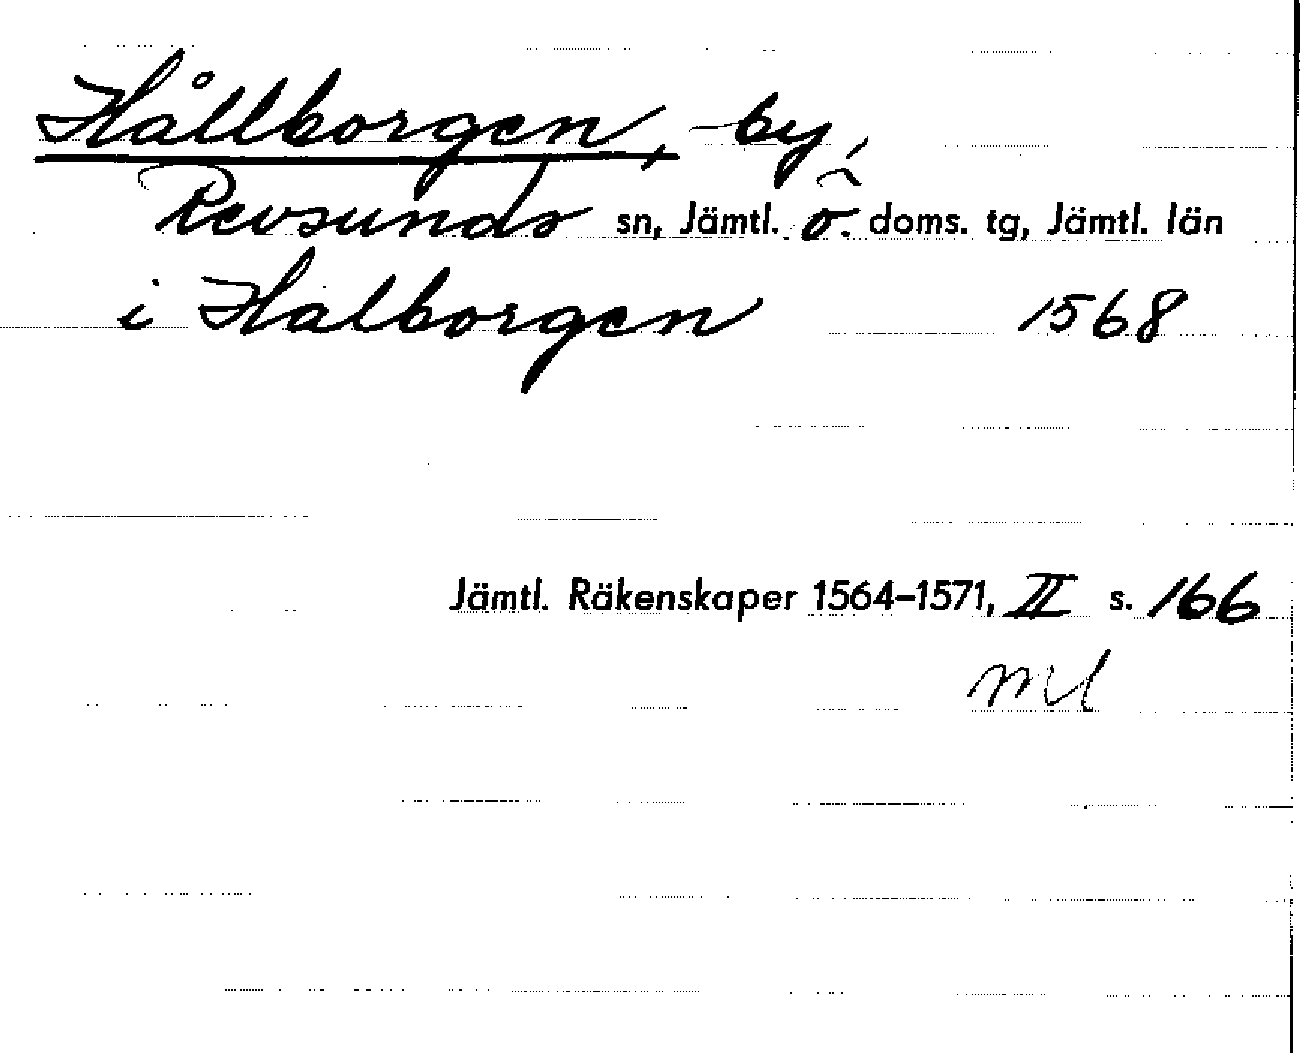 Hållborgen, by,
Revsunds sn, Jämtl. ö. doms. tg, Jämtl. län
i Halborgen 1568
Jämtl. Räkenskaper 1564–1571, II s. 166